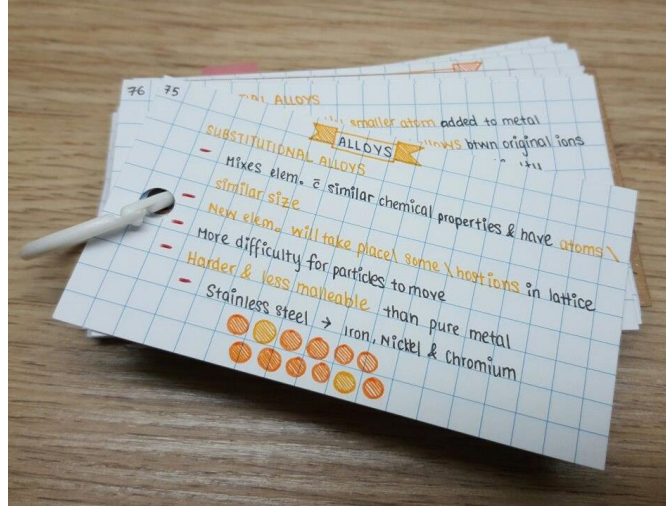 76
75
ALLOYS
smaller atom added to metal
btwn original ions
ALLOYS
SUBSTITUTIONAL ALLOYS
- Mixes elem. c̄ similar chemical properties & have atoms \
similar size
- New elem. will take place \ some \ host ions in lattice
- More difficulty for particles to move
- Harder & less malleable than pure metal
- Stainless steel → Iron, Nickel & Chromium